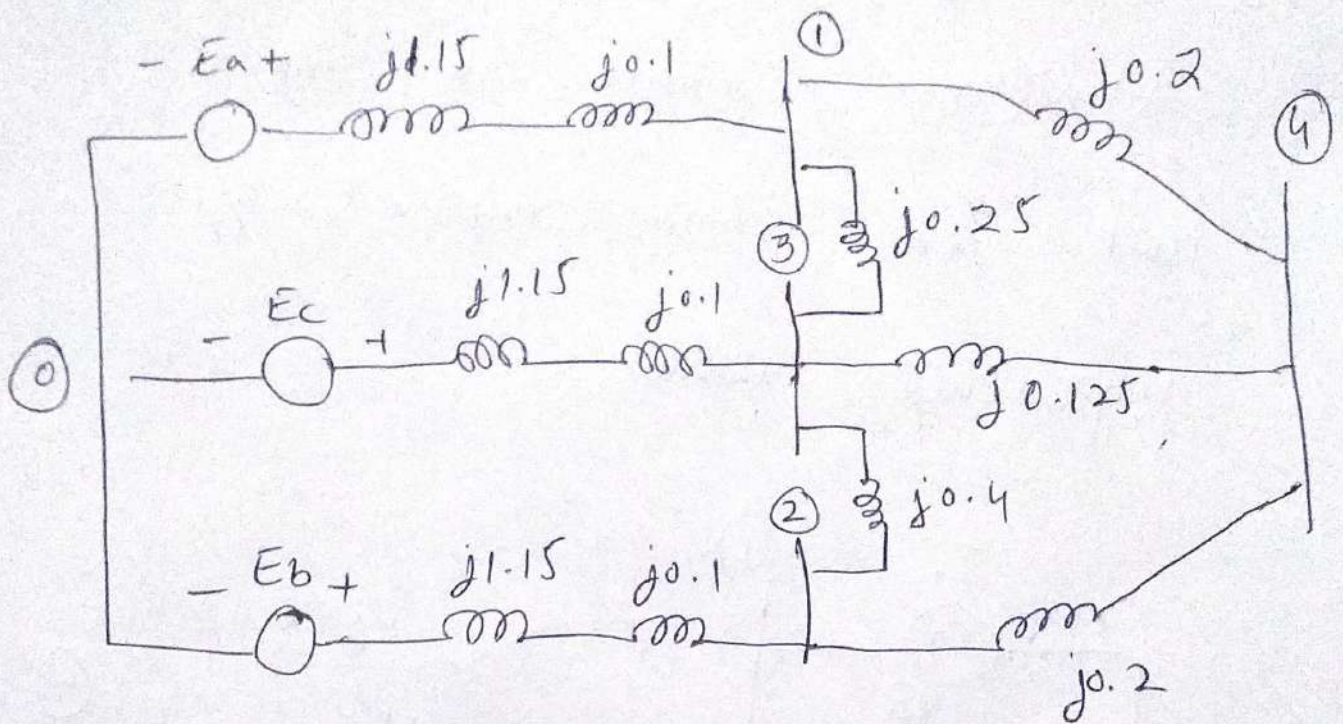 ①
- Ea + j1.15 j0.1
j0.2
④
③ j0.25
Ec
- + j1.15 j0.1
⓪
j0.125
② j0.4
- Eb + j1.15 j0.1
j0.2